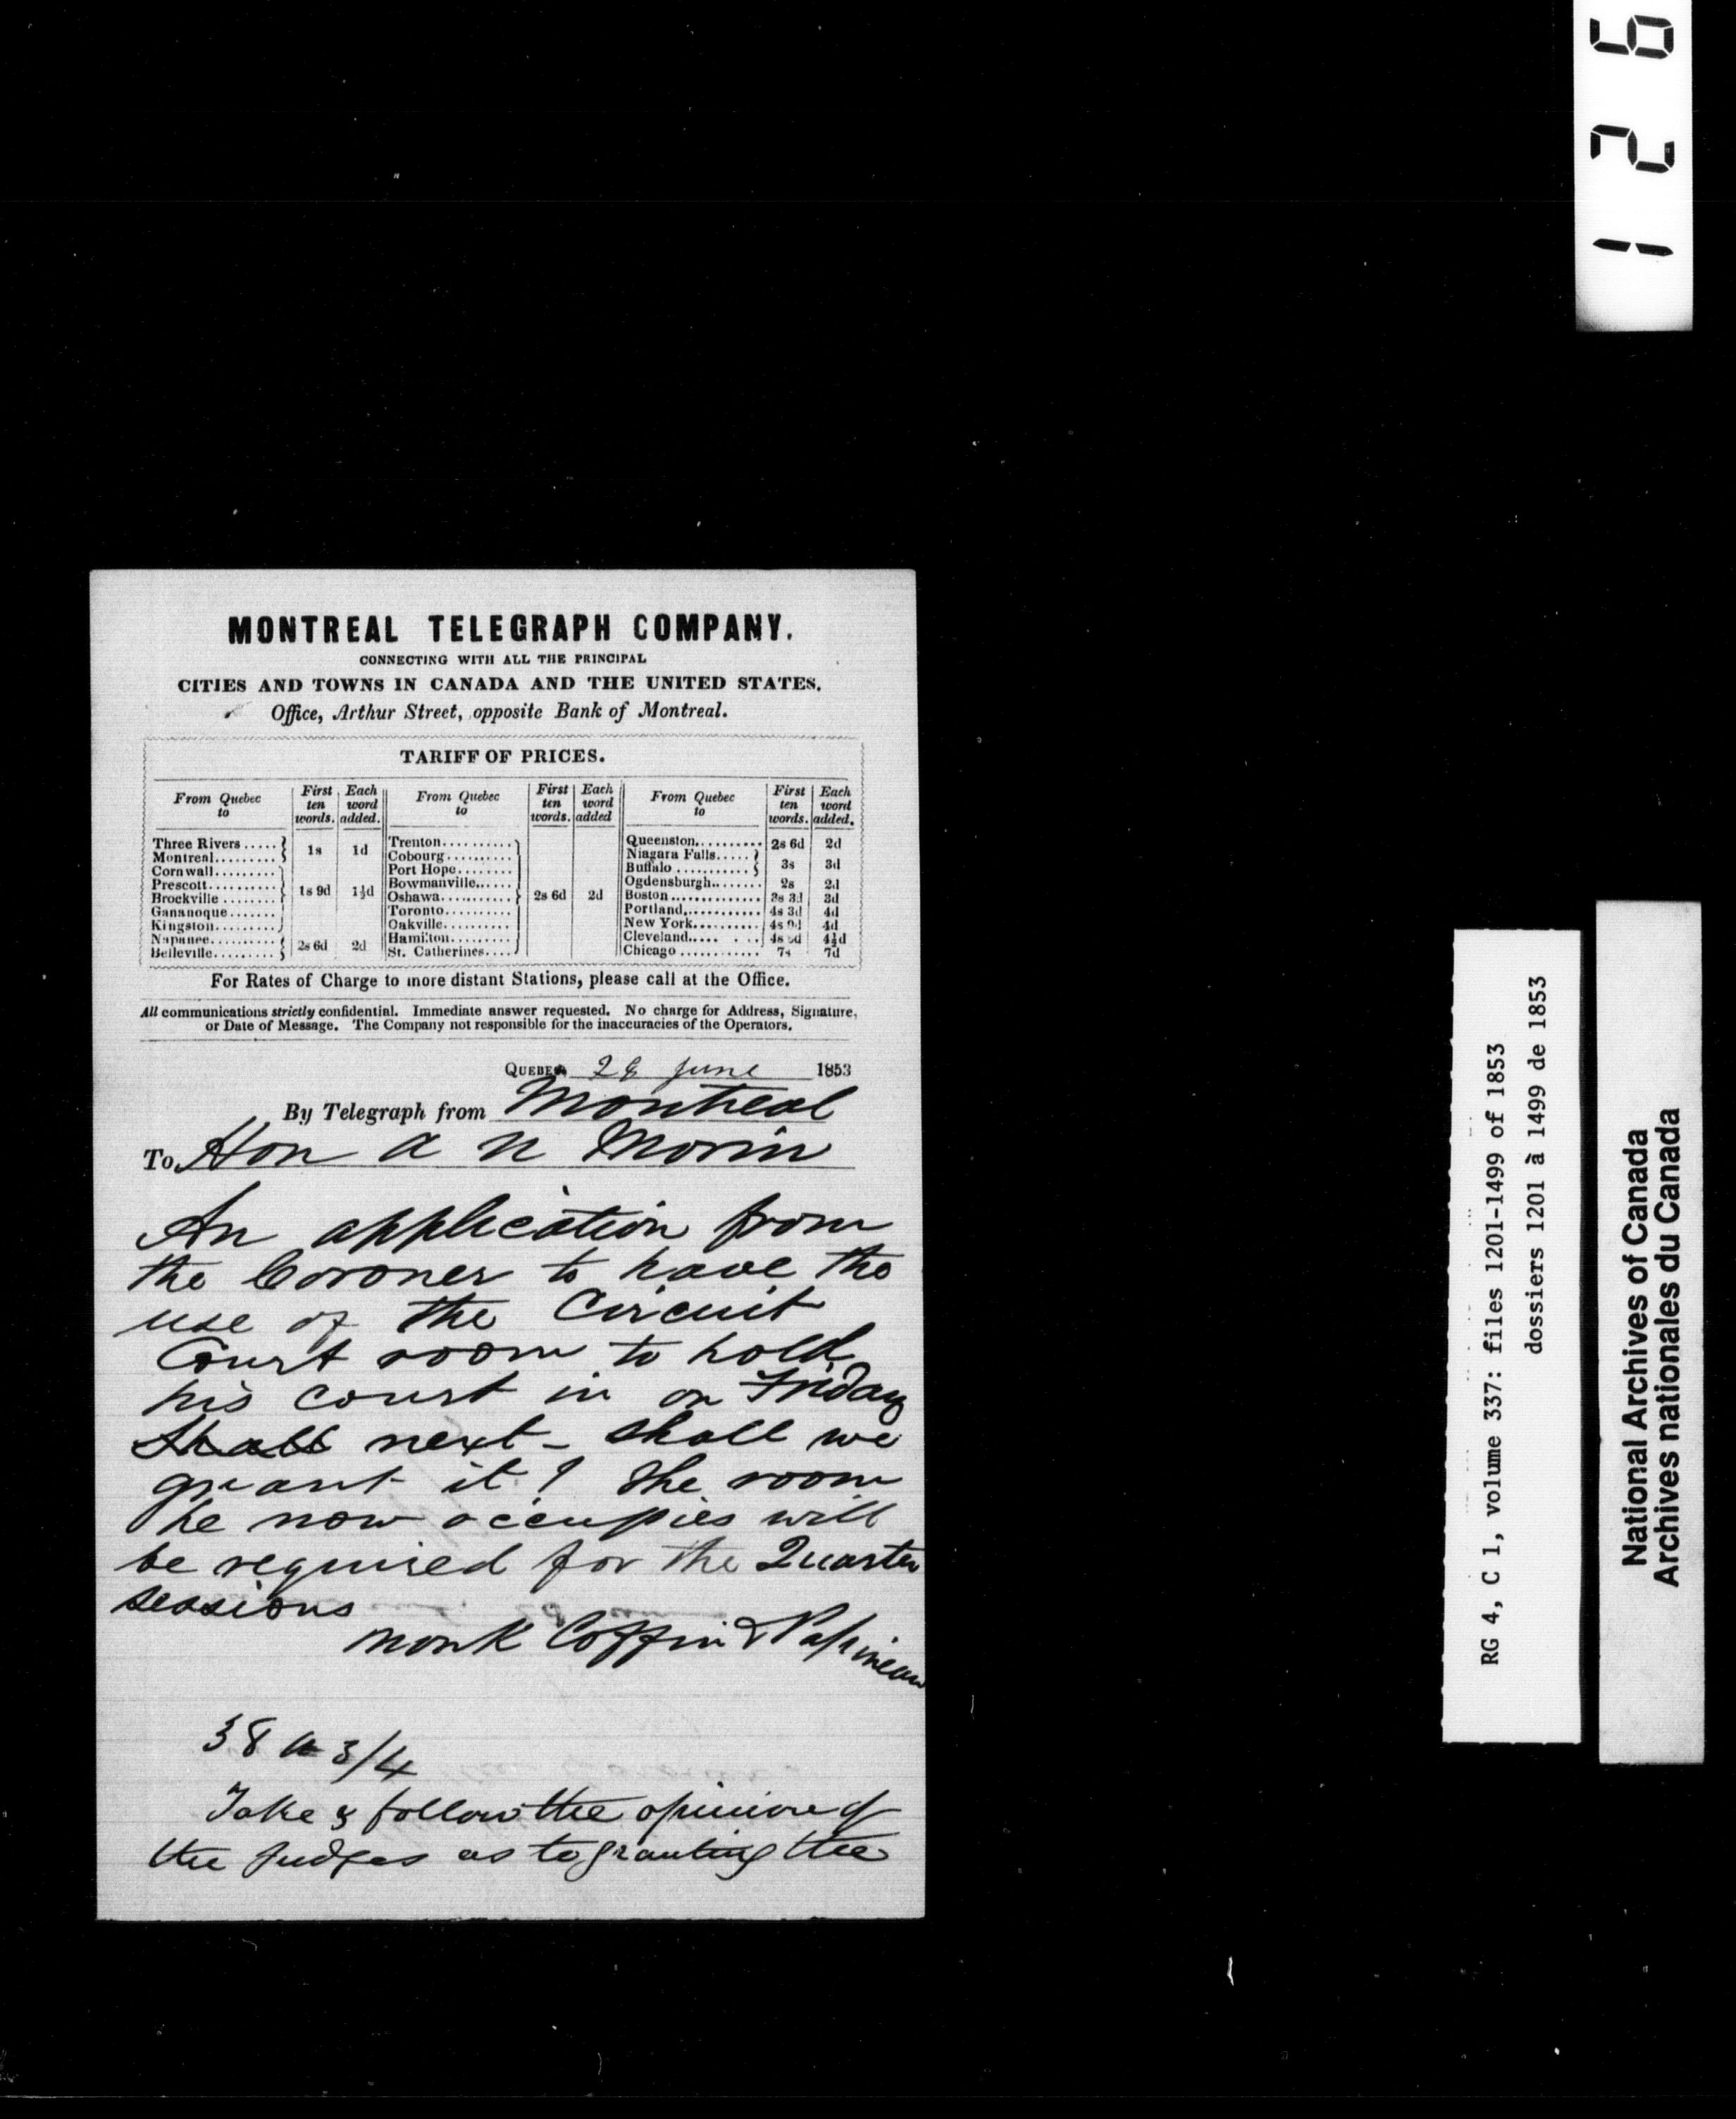 MONTREAL TELEGRAPH COMPANY.
CONNECTING WITH ALL THE PRINCIPAL
CITIES AND TOWNS IN CANADA AND THE UNITED STATES.
Office, Arthur Street, opposite Bank of Montreal.
TARIFF OF PRICES.
From Quebec to | First ten words. | Each word added. | From Quebec to | First ten words. | Each word added | From Quebec to | First ten words. | Each word added.
Three Rivers ..... | 1s | 1d | Trenton.......... | 2s 6d | 2d | Queenston.......... | 2s 6d | 2d
Montreal......... | Cobourg.......... | Niagara Falls..... | 3s | 3d
Cornwall......... | 1s 9d | 1½d | Port Hope........ | Buffalo ...........
Prescott.......... | Bowmanville...... | Ogdensburgh....... | 2s | 2d
Brockville ........ | Oshawa........... | Boston .............. | 3s 3d | 3d
Gananoque....... | Toronto.......... | Portland............ | 4s 3d | 4d
Kingston......... | Oakville.......... | New York.......... | 4s 9d | 4d
Napanee.......... | 2s 6d | 2d | Hamilton......... | Cleveland..... | 4½d
Belleville......... | St. Catherines.... | Chicago ............ | 7s | 7d
For Rates of Charge to more distant Stations, please call at the Office.
All communications strictly confidential. Immediate answer requested. No charge for Address, Signature,
or Date of Message. The Company not responsible for the inaccuracies of the Operators.
QUEBEC 28 June 1853
By Telegraph from Montreal
To Hon A N Morin
An application from
the Coroner to have the
use of the Circuit
Court room to hold
his court in on Friday
Shall next - shall we
grant it? The room
he now occupies will
be required for the Quarter
sessions
Monk Coffin & Papineau
38 3/4
Take & follow the opinion of
the Judges as to granting the
126
RG 4, C 1, volume 337: files 1201-1499 of 1853
dossiers 1201 à 1499 de 1853
National Archives of Canada
Archives nationales du Canada